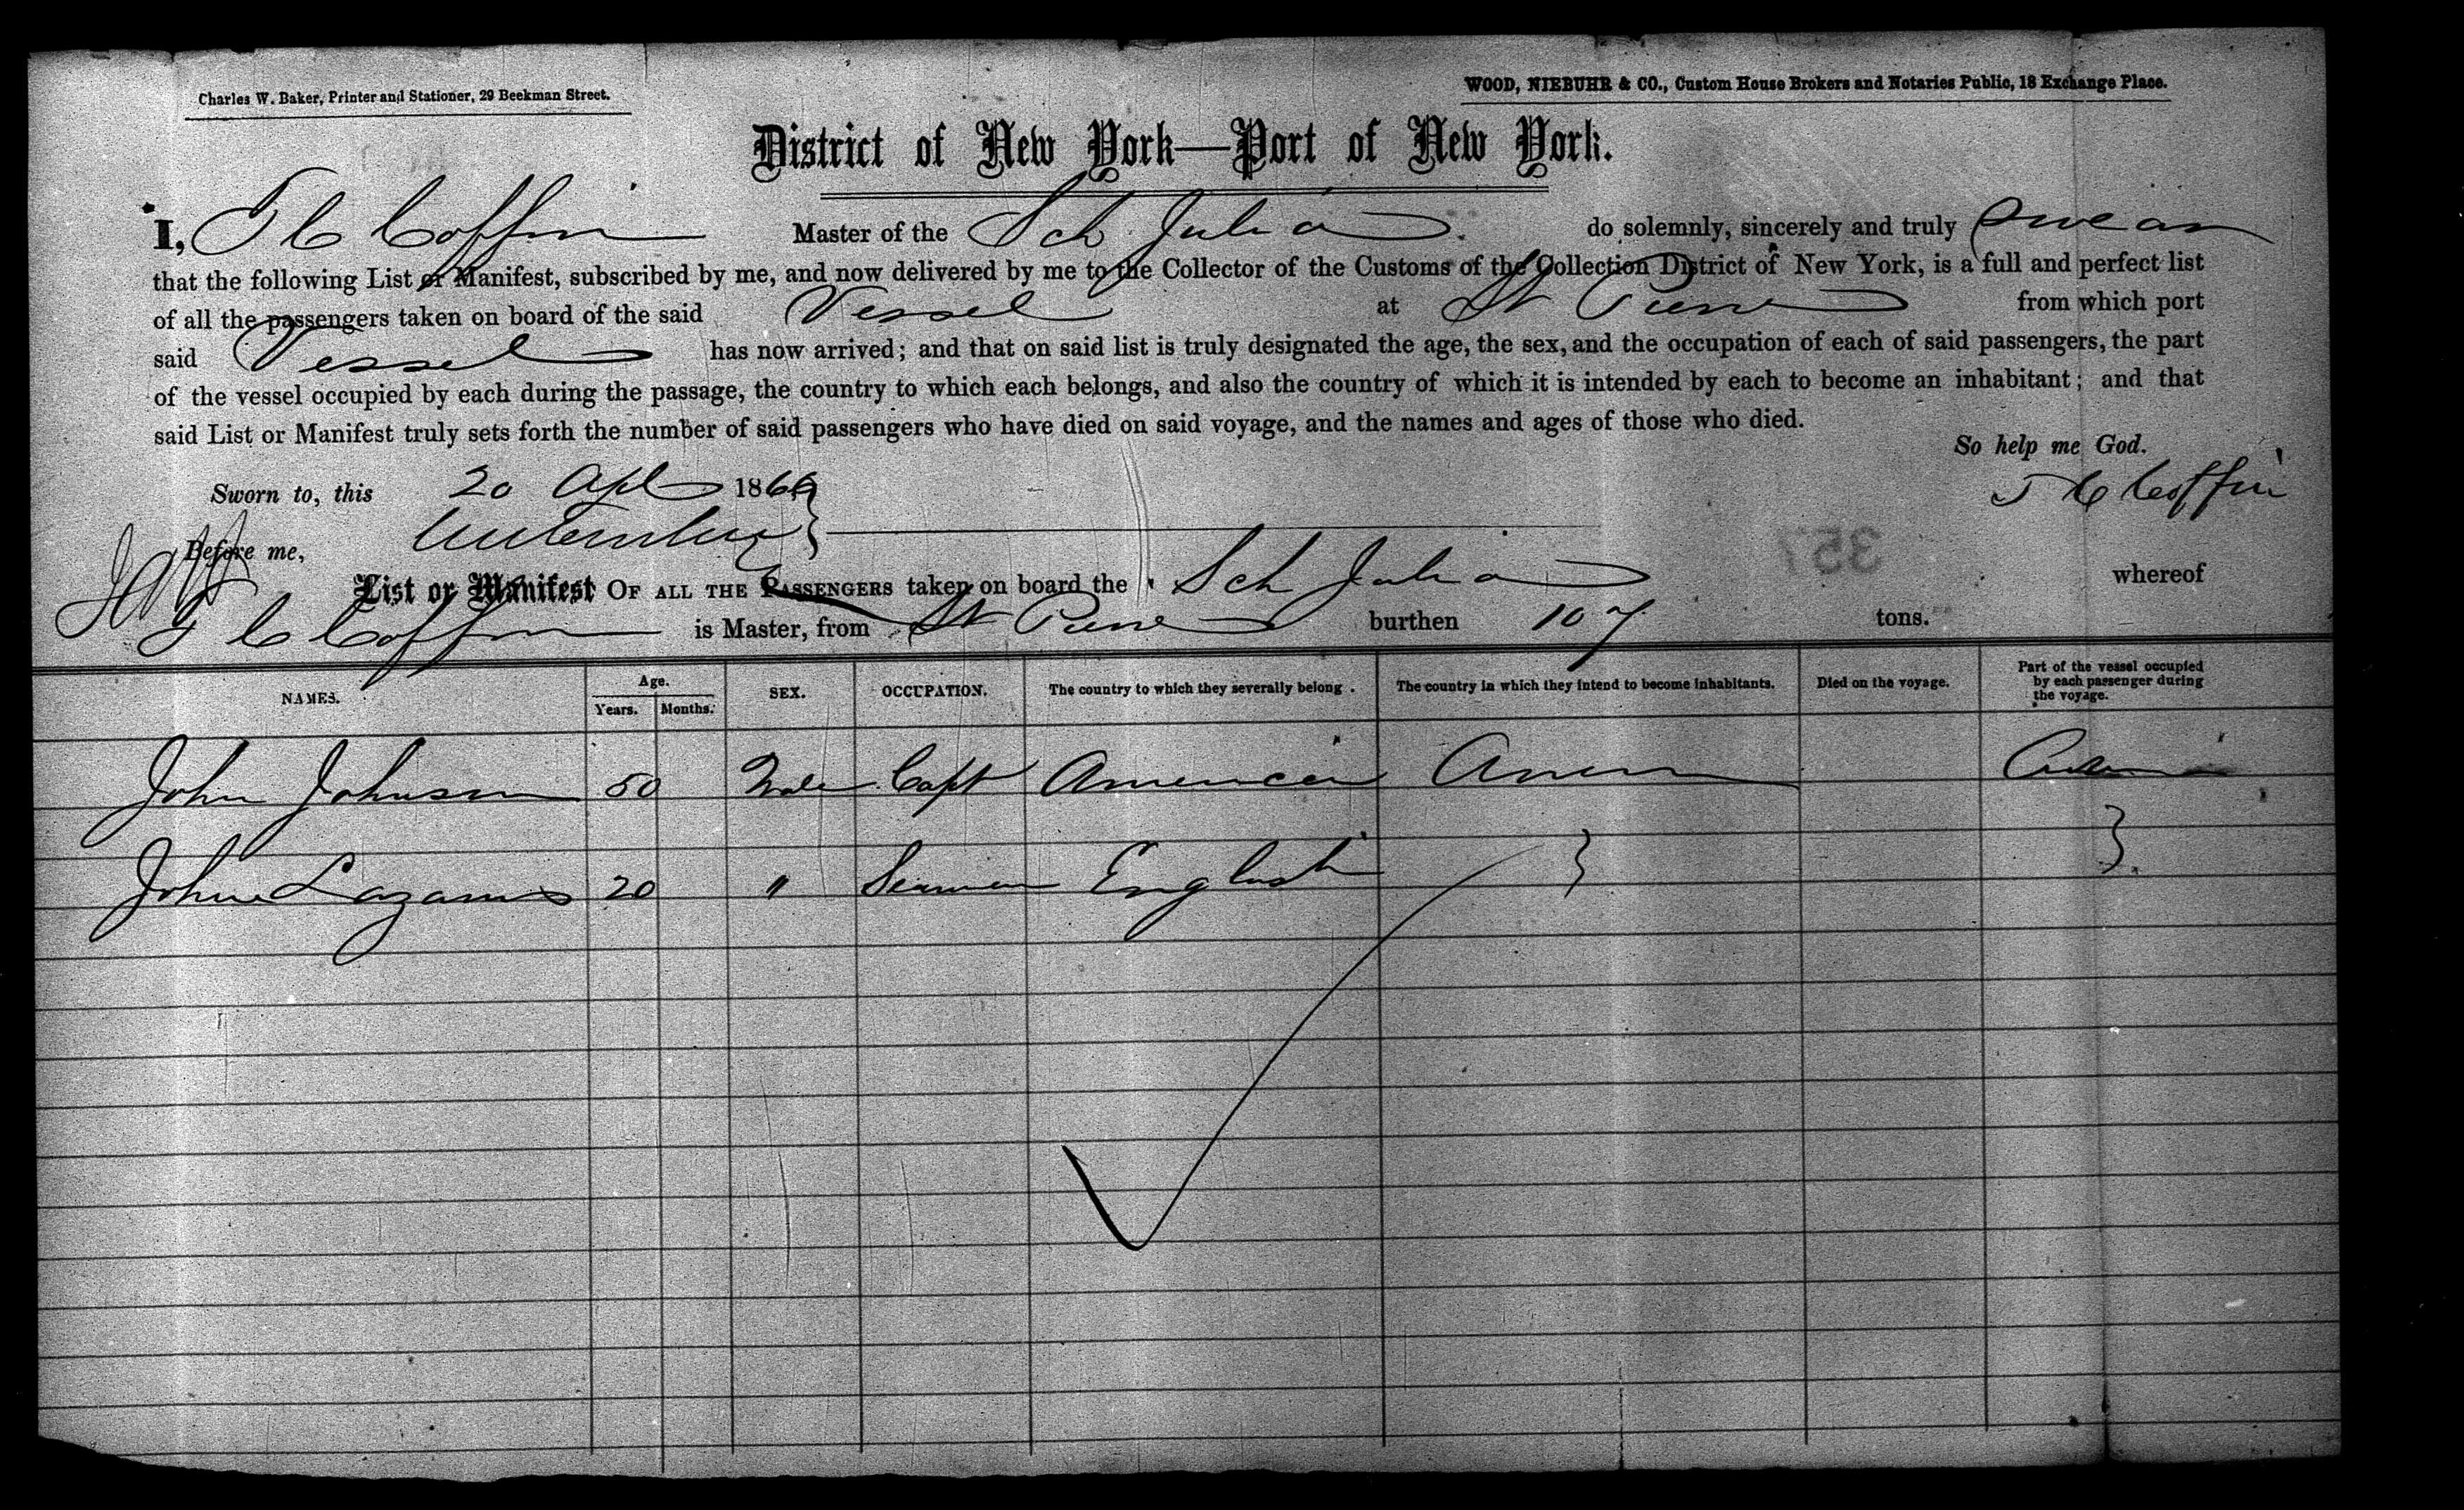 Charles W. Baker, Printer and Stationer, 29 Beekman Street.
WOOD, NIEBUHR & CO., Custom House Brokers and Notaries Public, 18 Exchange Place.
District of New York—Port of New York.
I, T C Coffin Master of the Sch Julia do solemnly, sincerely and truly swear
that the following List or Manifest, subscribed by me, and now delivered by me to the Collector of the Customs of the Collection District of New York, is a full and perfect list
of all the passengers taken on board of the said Vessel at St Pierre from which port
said Vessel has now arrived; and that on said list is truly designated the age, the sex, and the occupation of each of said passengers, the part
of the vessel occupied by each during the passage, the country to which each belongs, and also the country of which it is intended by each to become an inhabitant; and that
said List or Manifest truly sets forth the number of said passengers who have died on said voyage, and the names and ages of those who died.
So help me God.
Sworn to, this 20 Apl 1866
T C Coffin
Before me,
357
List or Manifest OF ALL THE PASSENGERS taken on board the Sch Julia whereof
T C Coffin is Master, from St Pierre burthen 107 tons.
NAMES. Age. Years. Months. SEX. OCCUPATION. The country to which they severally belong. The country in which they intend to become inhabitants. Died on the voyage. Part of the vessel occupied by each passenger during the voyage.
John Johnson 50 Male Capt American Amern Cabin
John Lazarus 20 " Seaman English }  }